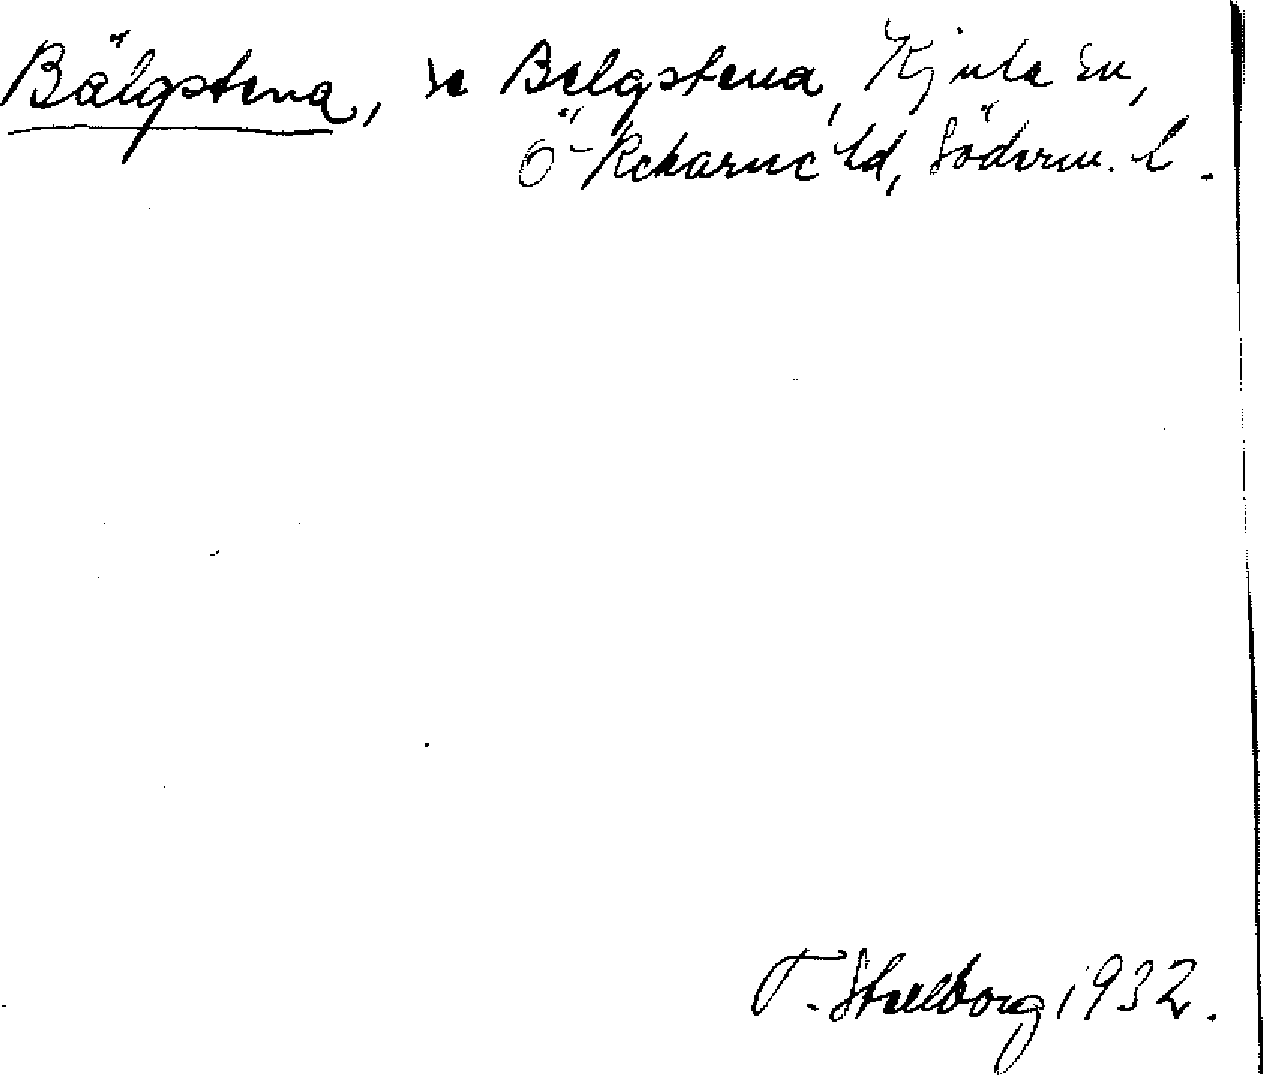 Bälgstena, se Belgstena, Kjula sn,
Ö-Rekarne hd, Söderm. l.
T. Stallborg 1932.